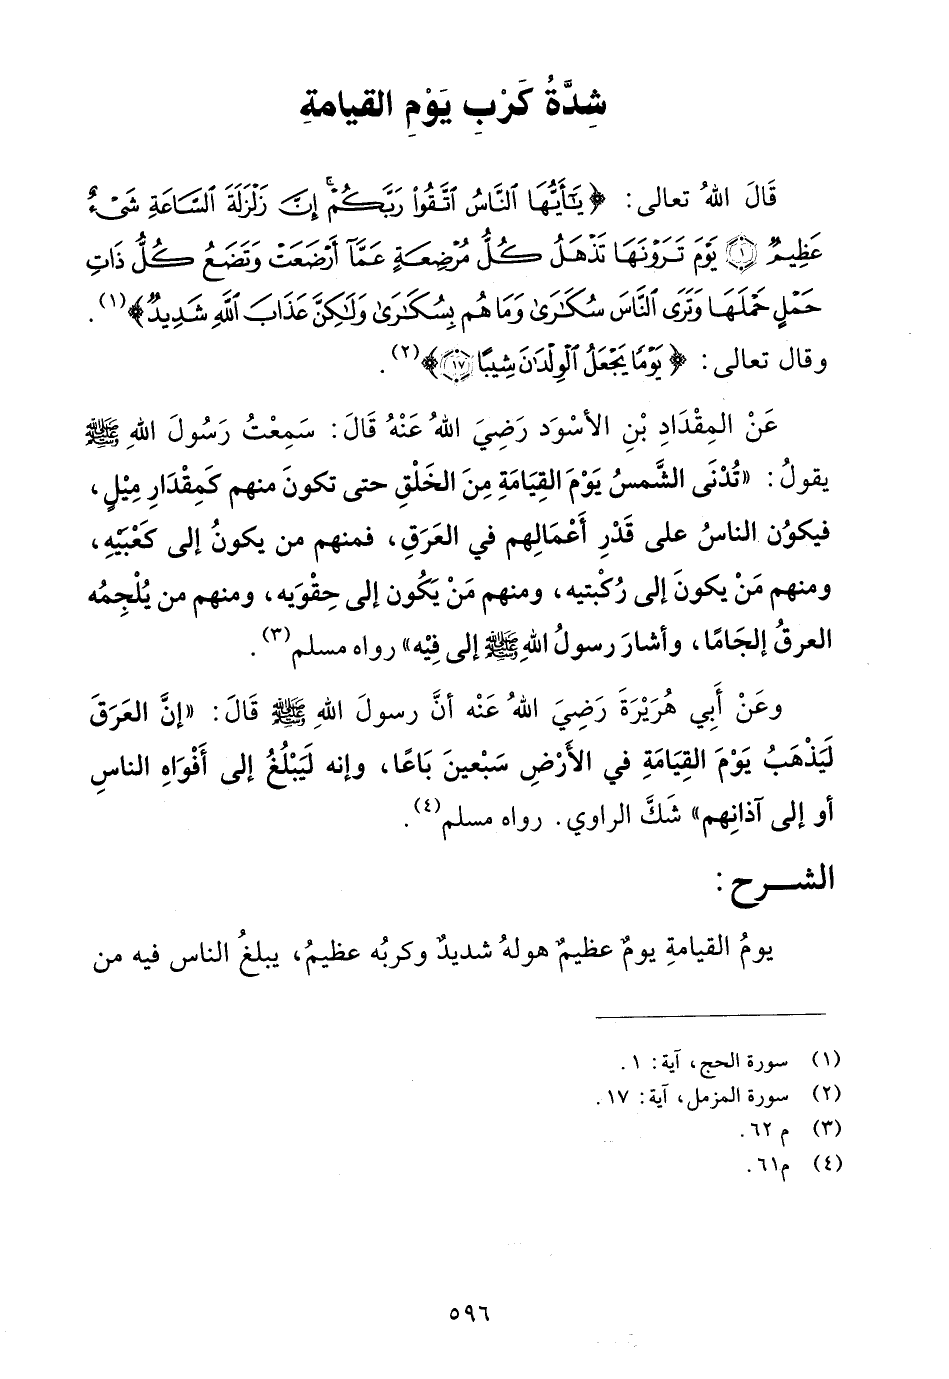 شِدَّةُ كَرْبِ يَوْمِ القيامةِ
قَالَ اللهُ تعالى: ﴿يَٰٓأَيُّهَا ٱلنَّاسُ ٱتَّقُوا۟ رَبَّكُمْ ۚ إِنَّ زَلْزَلَةَ ٱلسَّاعَةِ شَىْءٌ
عَظِيمٌ ۝١ يَوْمَ تَرَوْنَهَا تَذْهَلُ كُلُّ مُرْضِعَةٍ عَمَّآ أَرْضَعَتْ وَتَضَعُ كُلُّ ذَاتِ
حَمْلٍ حَمْلَهَا وَتَرَى ٱلنَّاسَ سُكَٰرَىٰ وَمَا هُم بِسُكَٰرَىٰ وَلَٰكِنَّ عَذَابَ ٱللَّهِ شَدِيدٌ﴾(١).
وقال تعالى: ﴿يَوْمًا يَجْعَلُ ٱلْوِلْدَٰنَ شِيبًا ۝١٧﴾(٢).
عَنْ المِقْدَادِ بْنِ الأسْوَد رَضِيَ اللهُ عَنْهُ قَالَ: سَمِعْتُ رَسُولَ اللهِ ﷺ
يقولُ: «تُدْنَى الشَّمسُ يَوْمَ القِيَامَةِ مِنَ الخَلْقِ حتى تكونَ منهم كَمِقْدَارِ مِيْلٍ،
فيكوُن الناسُ على قَدْرِ أَعْمَالِهم في العَرَقِ، فمنهم من يكونُ إلى كَعْبَيْهِ،
ومنهم مَنْ يكونَ إلى رُكْبتيه، ومنهم مَنْ يَكُون إلى حِقْوَيه، ومنهم من يُلْجِمُه
العرقُ إلجَامًا، وأشارَ رسولُ اللهِ ﷺ إلى فِيْه» رواه مسلم(٣).
وعَنْ أَبِي هُرَيْرَةَ رَضِيَ اللهُ عَنْه أنَّ رسولَ اللهِ ﷺ قَالَ: «إنَّ العَرَقَ
لَيَذْهَبُ يَوْمَ القِيَامَةِ في الأَرْضِ سَبْعينَ بَاعًا، وإنه لَيَبْلُغُ إلى أَفْوَاهِ الناسِ
أو إلى آذانِهم» شَكَّ الراوي. رواه مسلم(٤).
الشـــرح:
يومُ القيامةِ يومٌ عظيمٌ هولهُ شديدٌ وكربُه عظيمُ، يبلغُ الناس فيه من
(١) سورة الحج، آية: ١.
(٢) سورة المزمل، آية: ١٧.
(٣) م ٦٢.
(٤) م٦١.
٥٩٦